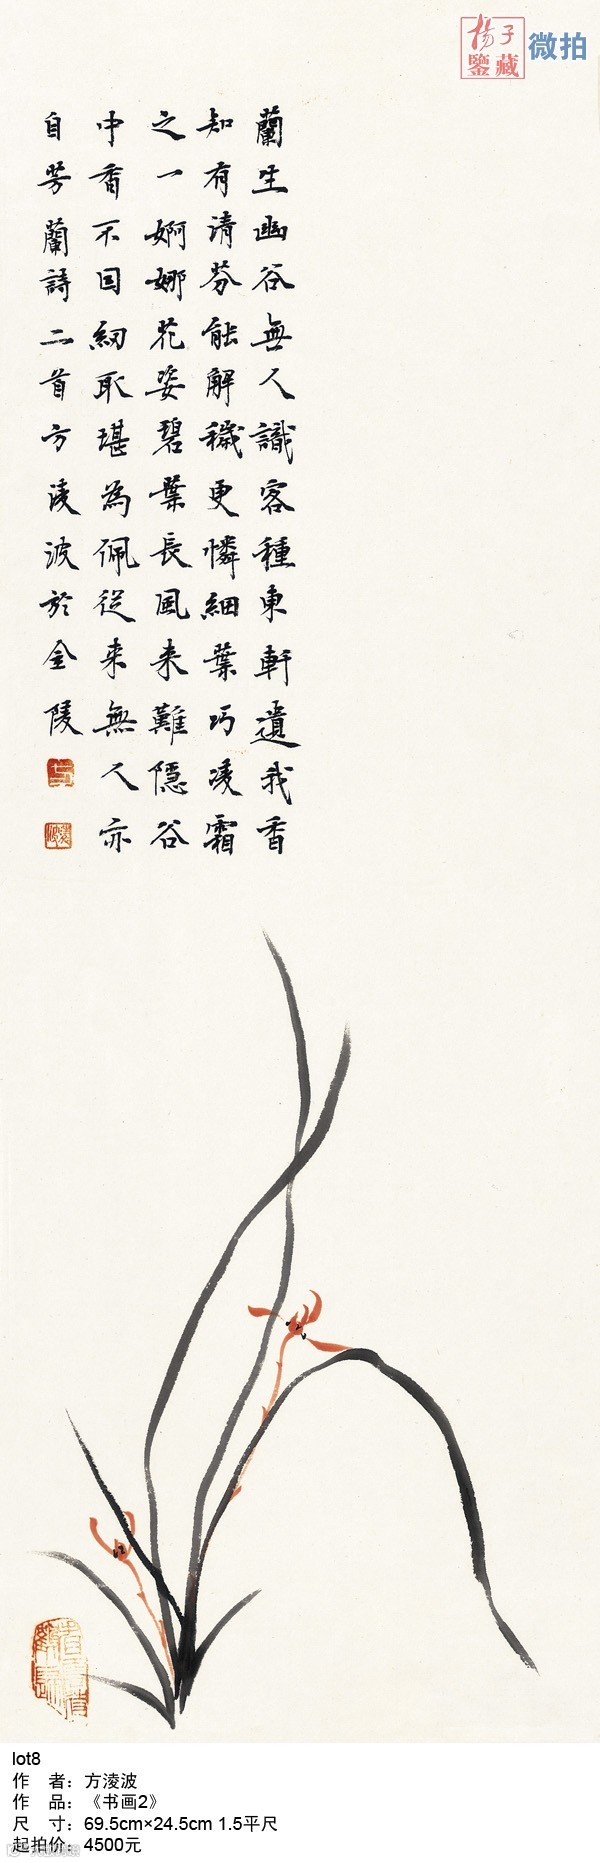 楊子
鑒藏
微拍
蘭生幽谷無人識客種東軒遺我香
知有清芬能解穢更憐細葉巧凌霜
之一婀娜花姿碧葉長風来難隱谷
中香不因紉取堪為佩從来無人亦
自芳蘭詩二首方淩波於金陵
lot8
作 者：方淩波
作 品：《书画2》
尺 寸：69.5cm×24.5cm 1.5平尺
起拍价：4500元